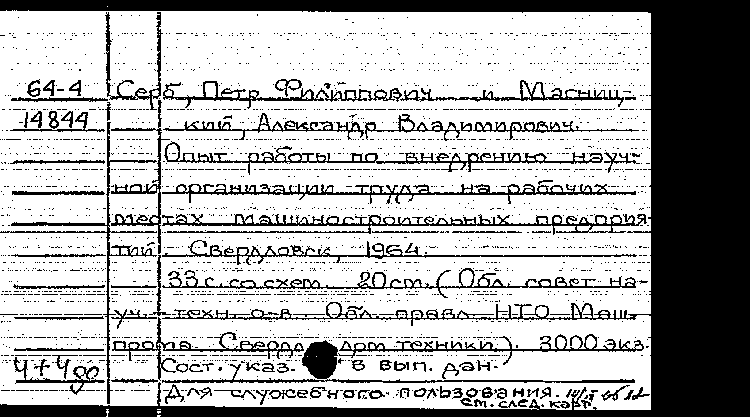 64-4 Серб, Петр Филиппович и Магниц-
14844 кий, Александр Владимирович.
Опыт работы по внедрению науч-
ной организации труда на рабочих
местах машиностроительных предприя-
тий. Свердловск, 1964.
33 с. со схем. 20 см. (Обл. совет на-
уч.-техн. о-в. Обл. правл. НТО Маш-
прома. Свердл. дом техники). 3000 экз.
4+4 до Сост. указ. в вып. дан.
Для служебного пользования.
см. след. карт.